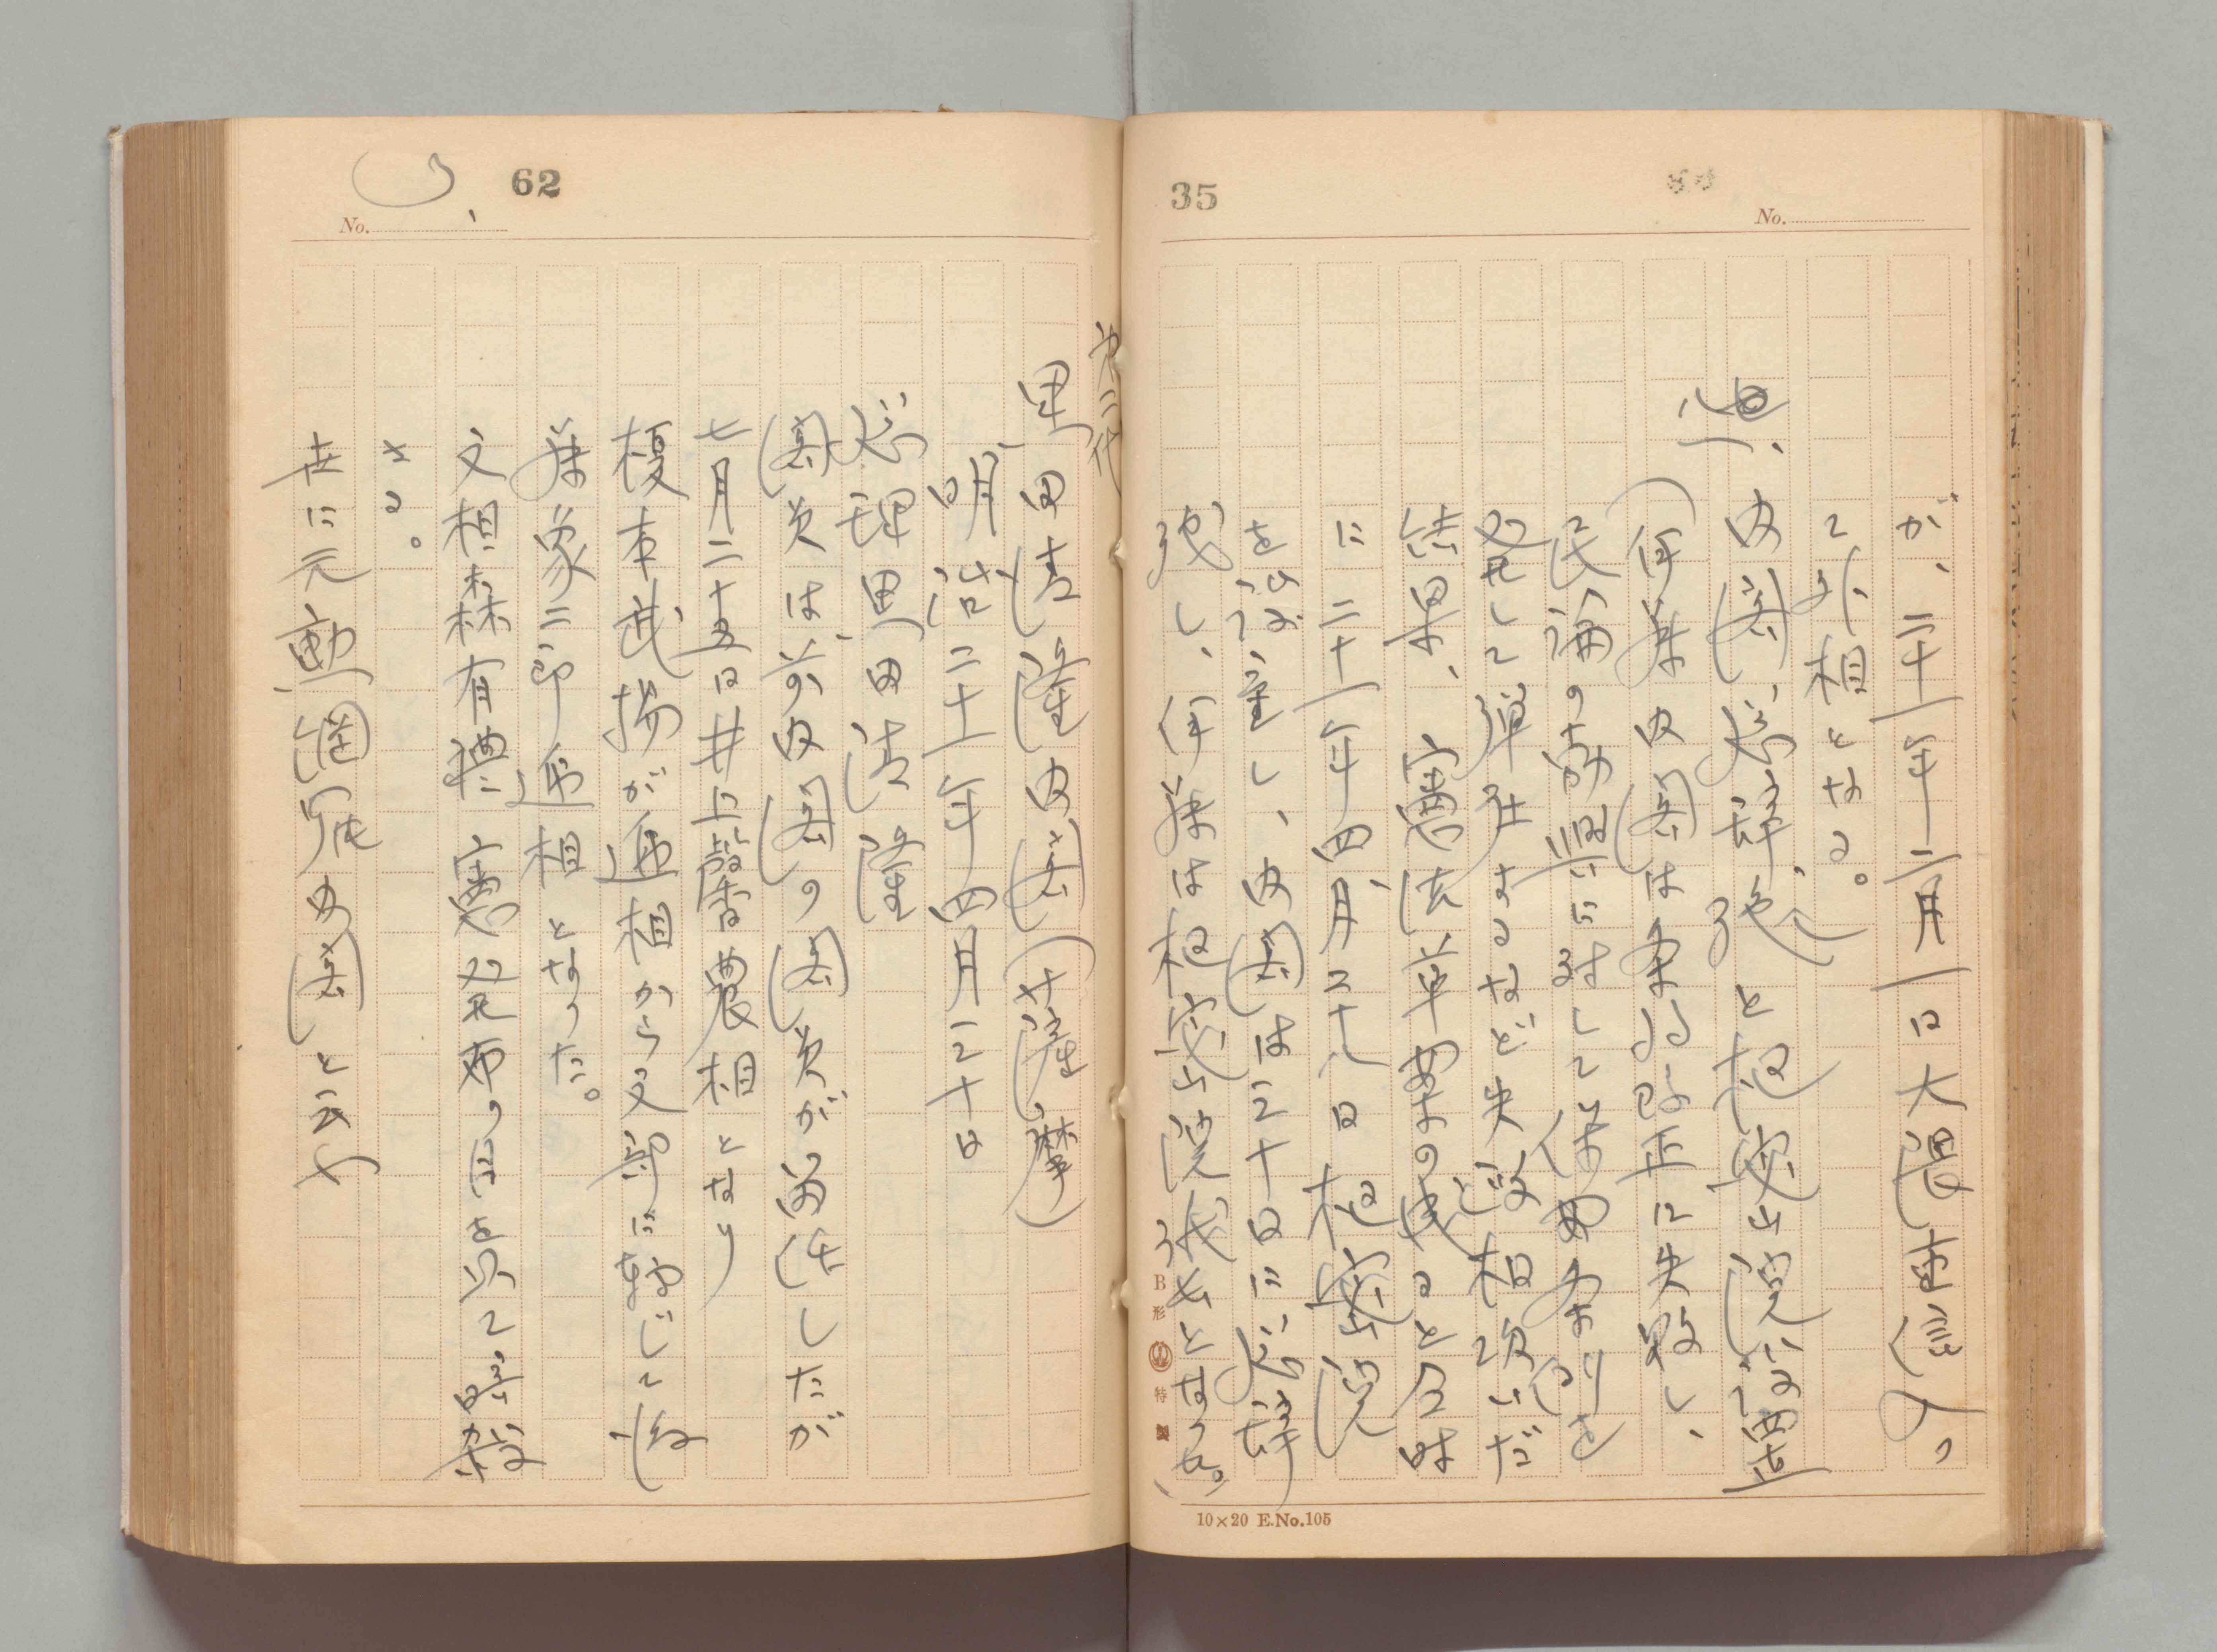 35
No.
が、二十一年二月一日大隈重信入
て外相となる。
内閣総辞
(伊藤内閣は条約改正に失敗し、
民論の勃興に対して保安条例を
発して弾圧するなど失政相次いだ
結果、憲法草案の成ると同時
に二十一年四月二十八日枢密院
を設置し、内閣は三十日に総辞
し、伊藤は枢密院議長となった。)
B形 特製
10×20 E.No.105
62
No.
第二代
黒田清隆内閣(薩摩)
明治二十一年四月三十日
総理黒田清隆
閣員は、前内閣の閣員が留任したが
七月二十五日井上馨農相となり
榎本武揚が逓相から文部に転じて後
藤象二郎逓相となった。
文相森有禮憲法発布の日を以て暗殺
さる。
世に元勲網羅内閣と云ふ